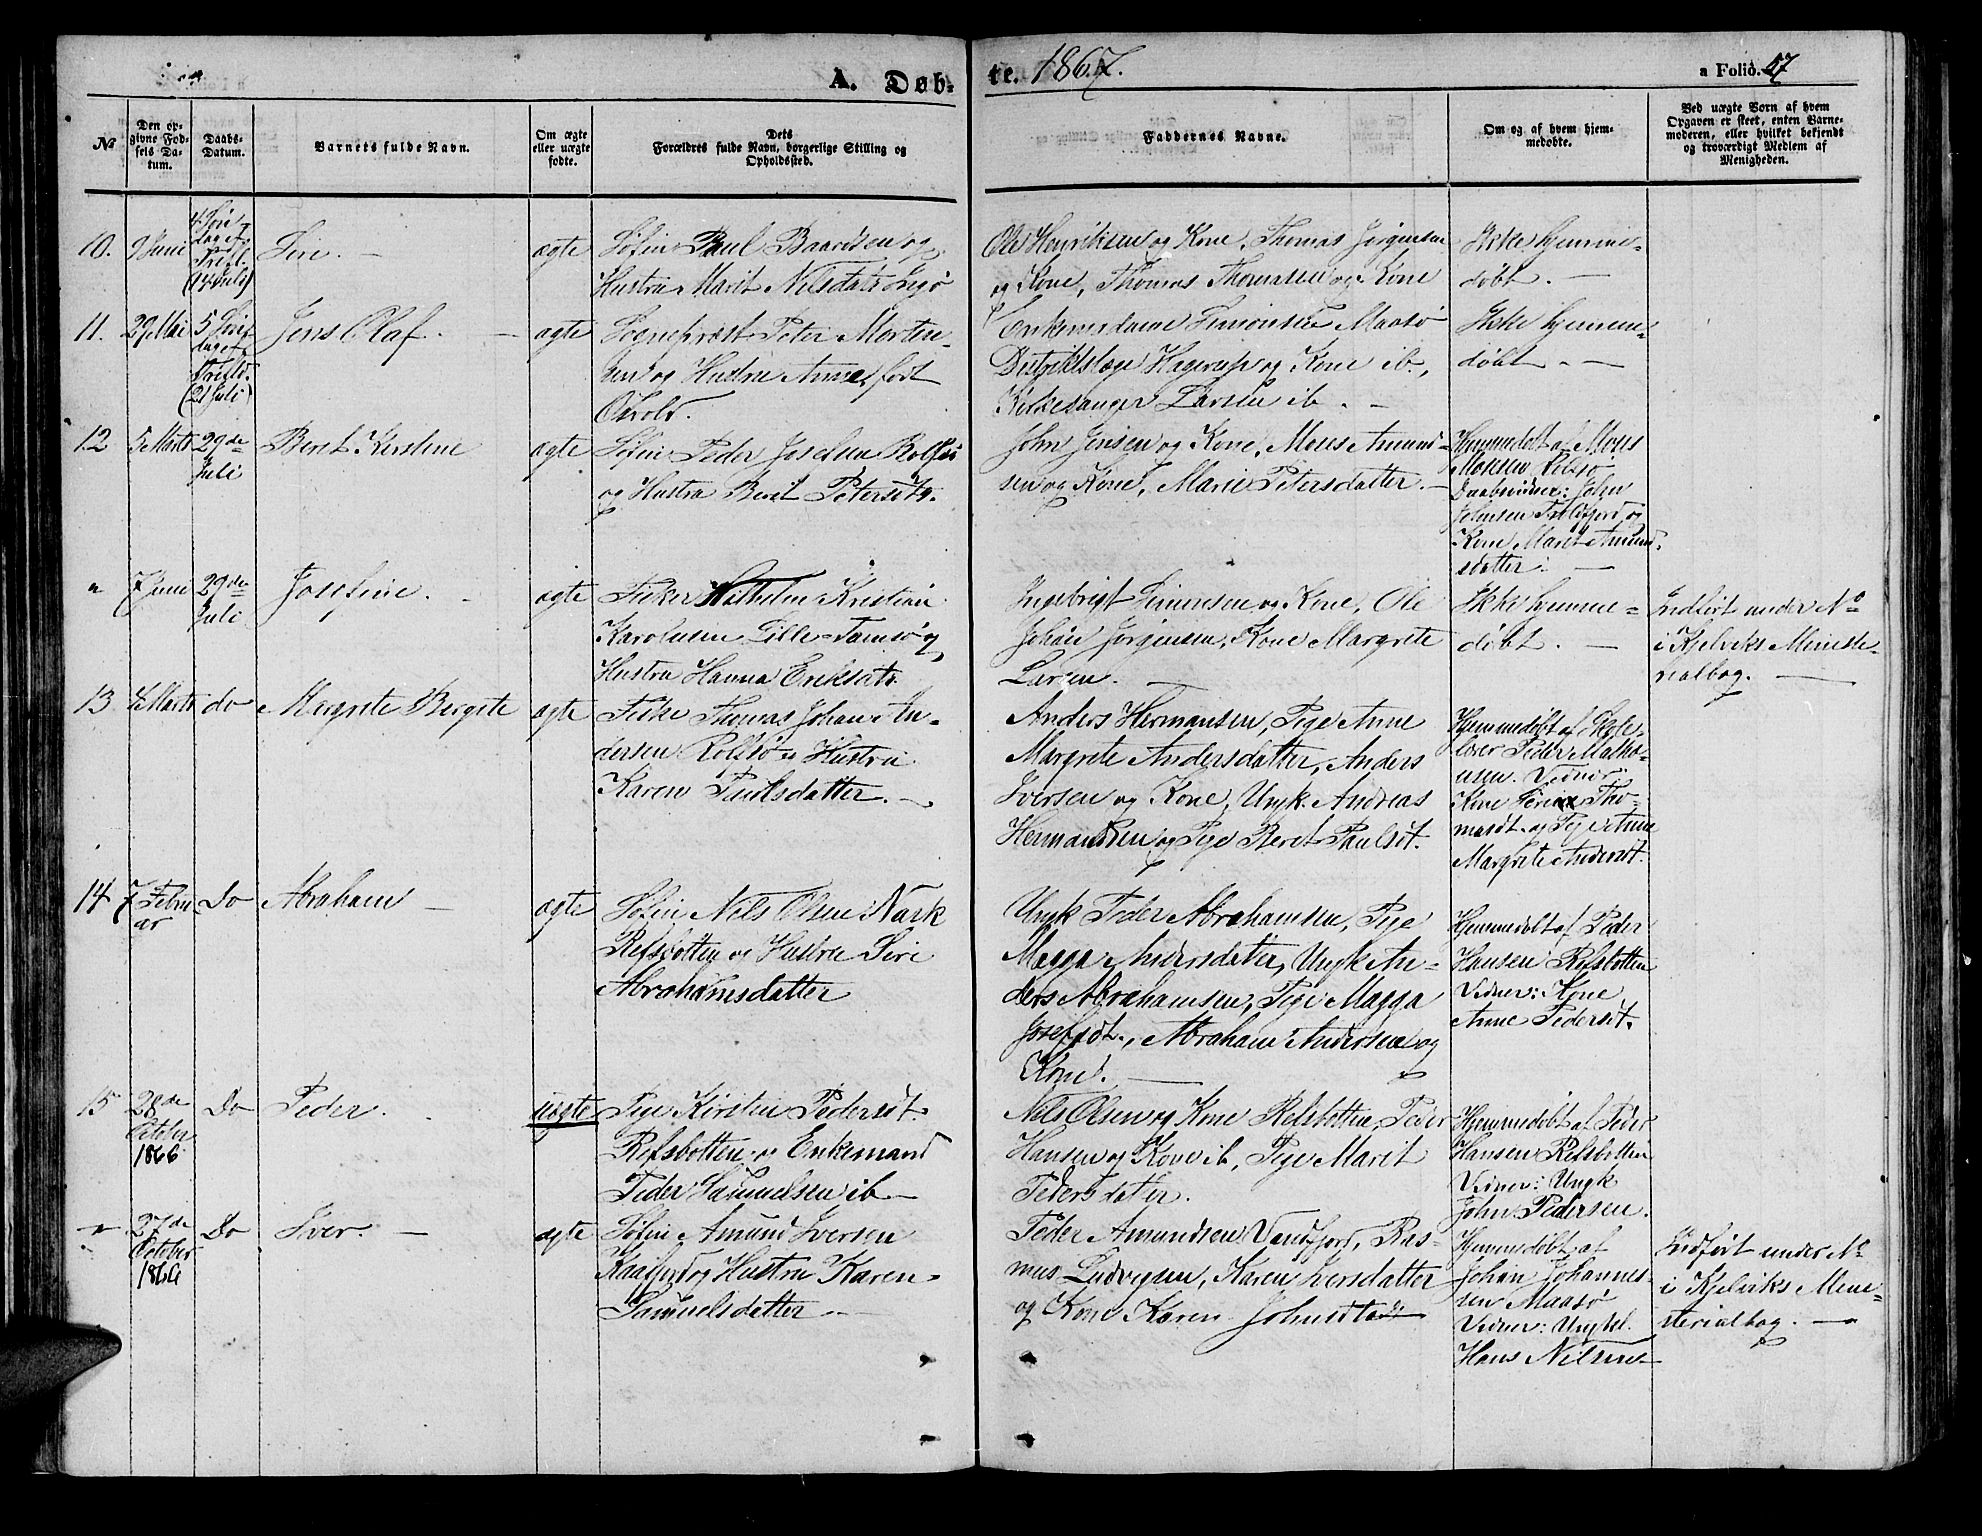 A. Døb-
te. 1867.
a Folio. 57
No
Den op-
givne Fød-
sels Da-
tum.
Daabs-
Datum.
Barnets fulde Navn.
Om ægte
eller uægte
fødte.
Dets
Forældres fulde Navn, borgerlige Stilling og
Opholdssted.
Faddernes Navne.
Om og af hvem hjem-
medøbte.
Ved uægte Børn af hvem
Opgaven er skeet, enten Barne-
moderen, eller hvilket bekjendt
og troværdigt Medlem af
Menigheden.
10. 9 Juni
4 Søn-
dag ef.
Trefl.
(14 Juli)
Siri. -
ægte
Søfin Paul Baardsen og
Hustru Marit Nilsdatr
Ole Henriksen og Kone, Thomas Jørgensen
og Kone, Thomas Thomassen og Kone
Ikke hjemme-
døbt. -
11. 29 Mai
5 Sønd
dag ef
Trefld.
(21 Juli)
Jens Olaf. -
ægte
Sogneprest Peter Morten-
sen og Hustru Anna, født
Oxold.
Enkemadame Simonsen Maasø
Distriktslæge Hagerup og Kone ib.,
Kirkesanger Larsen ib. -
Ikke hjemme-
døbt. -
12 5 Marts
29de
Juli
Beret Kirstine
ægte
Søfin Peder Josefsen Rolfsø
og Hustru Berit Petersdtr.
John Jensen og Kone, Mons Amund-
sen og Kone, Marie Petersdatter. -
Hjemmedøbt af Mons
Monsen
Daabsvidner: John
Johnsen og
Kone Maret Amund-
sdatter. -
" 7 Juni
29de
Juli
Josefine. -
ægte
Fisker Wilhelm Kristian
Karolusen Lille-Tamsø og
Hustru Hanna Eriksdtr.
Ingebrigt Simonsen og Kone, Ole
Johan Jørgensen, Kone Margrete
Larsen. -
Ikke hjemme-
døbt. -
Indført under No
i Kjelviks Ministe-
rialbog. -
13 4 Marts do Margrete Bergite
ægte
Fiske Thomas Johan An-
dersen Rolfsø og Hustru
Karen Paulsdatter. -
Anders Hermansen, Pige Anne
Margrete Andersdatter, Anders
Iversen og Kone, Ungk. Andreas
Hermansen og Pige Beret Paulsdt.
Hjemmedøbt af Skole-
lærer Peder Mathi-
esen. Vidner:
Kone Tho-
masdt. og Pige Anne
Margrete Andersdt.
14 7 Febru
ar
Do Abraham -
ægte
Søfin Nils Olsen Nark
Refsbotten og Hustru Siri
Abrahamsdatter
Ungk Peder Abrahamsen, Pige
Magga Andersdatter, Ungk An-
ders Abrahamsen, Pige Magga
Josefsdt., Abraham Andersen og
Kone. -
Hjemmedøbt af Peder
Hansen Refsbotten
Vidner: Kone
Anne Pedersdt.
15 28de
October
1866
Do Peder.
uægte
Pige Kirsten Pedersdt.
Refsbotten og Enkemand
Peder Samuelsen ib -
Nils Olsen og Kone Refsbotten, Peder
Hansen og Kone ib, Pige Marit
Pedersdatter.
Hjemmedøbt af Peder
Hansen Refsbotten
Vidner: Ungk
John Pedersen.
" 27de
October
1866
Do Iver. -
ægte
Søfin Amund Iversen
Kaafjord og Hustru Karen
Samuelsdatter -
Peder Amundsen, Ras-
mus Ludvigsen, Karen Iversdatter
og Kone Karen
Hjemmedøbt af
Johan Johannes-
sen Maasø
Vidner: Ungkl.
Hans Nilsen -
Indført under No
i Kjelviks Mini-
sterialbog. -